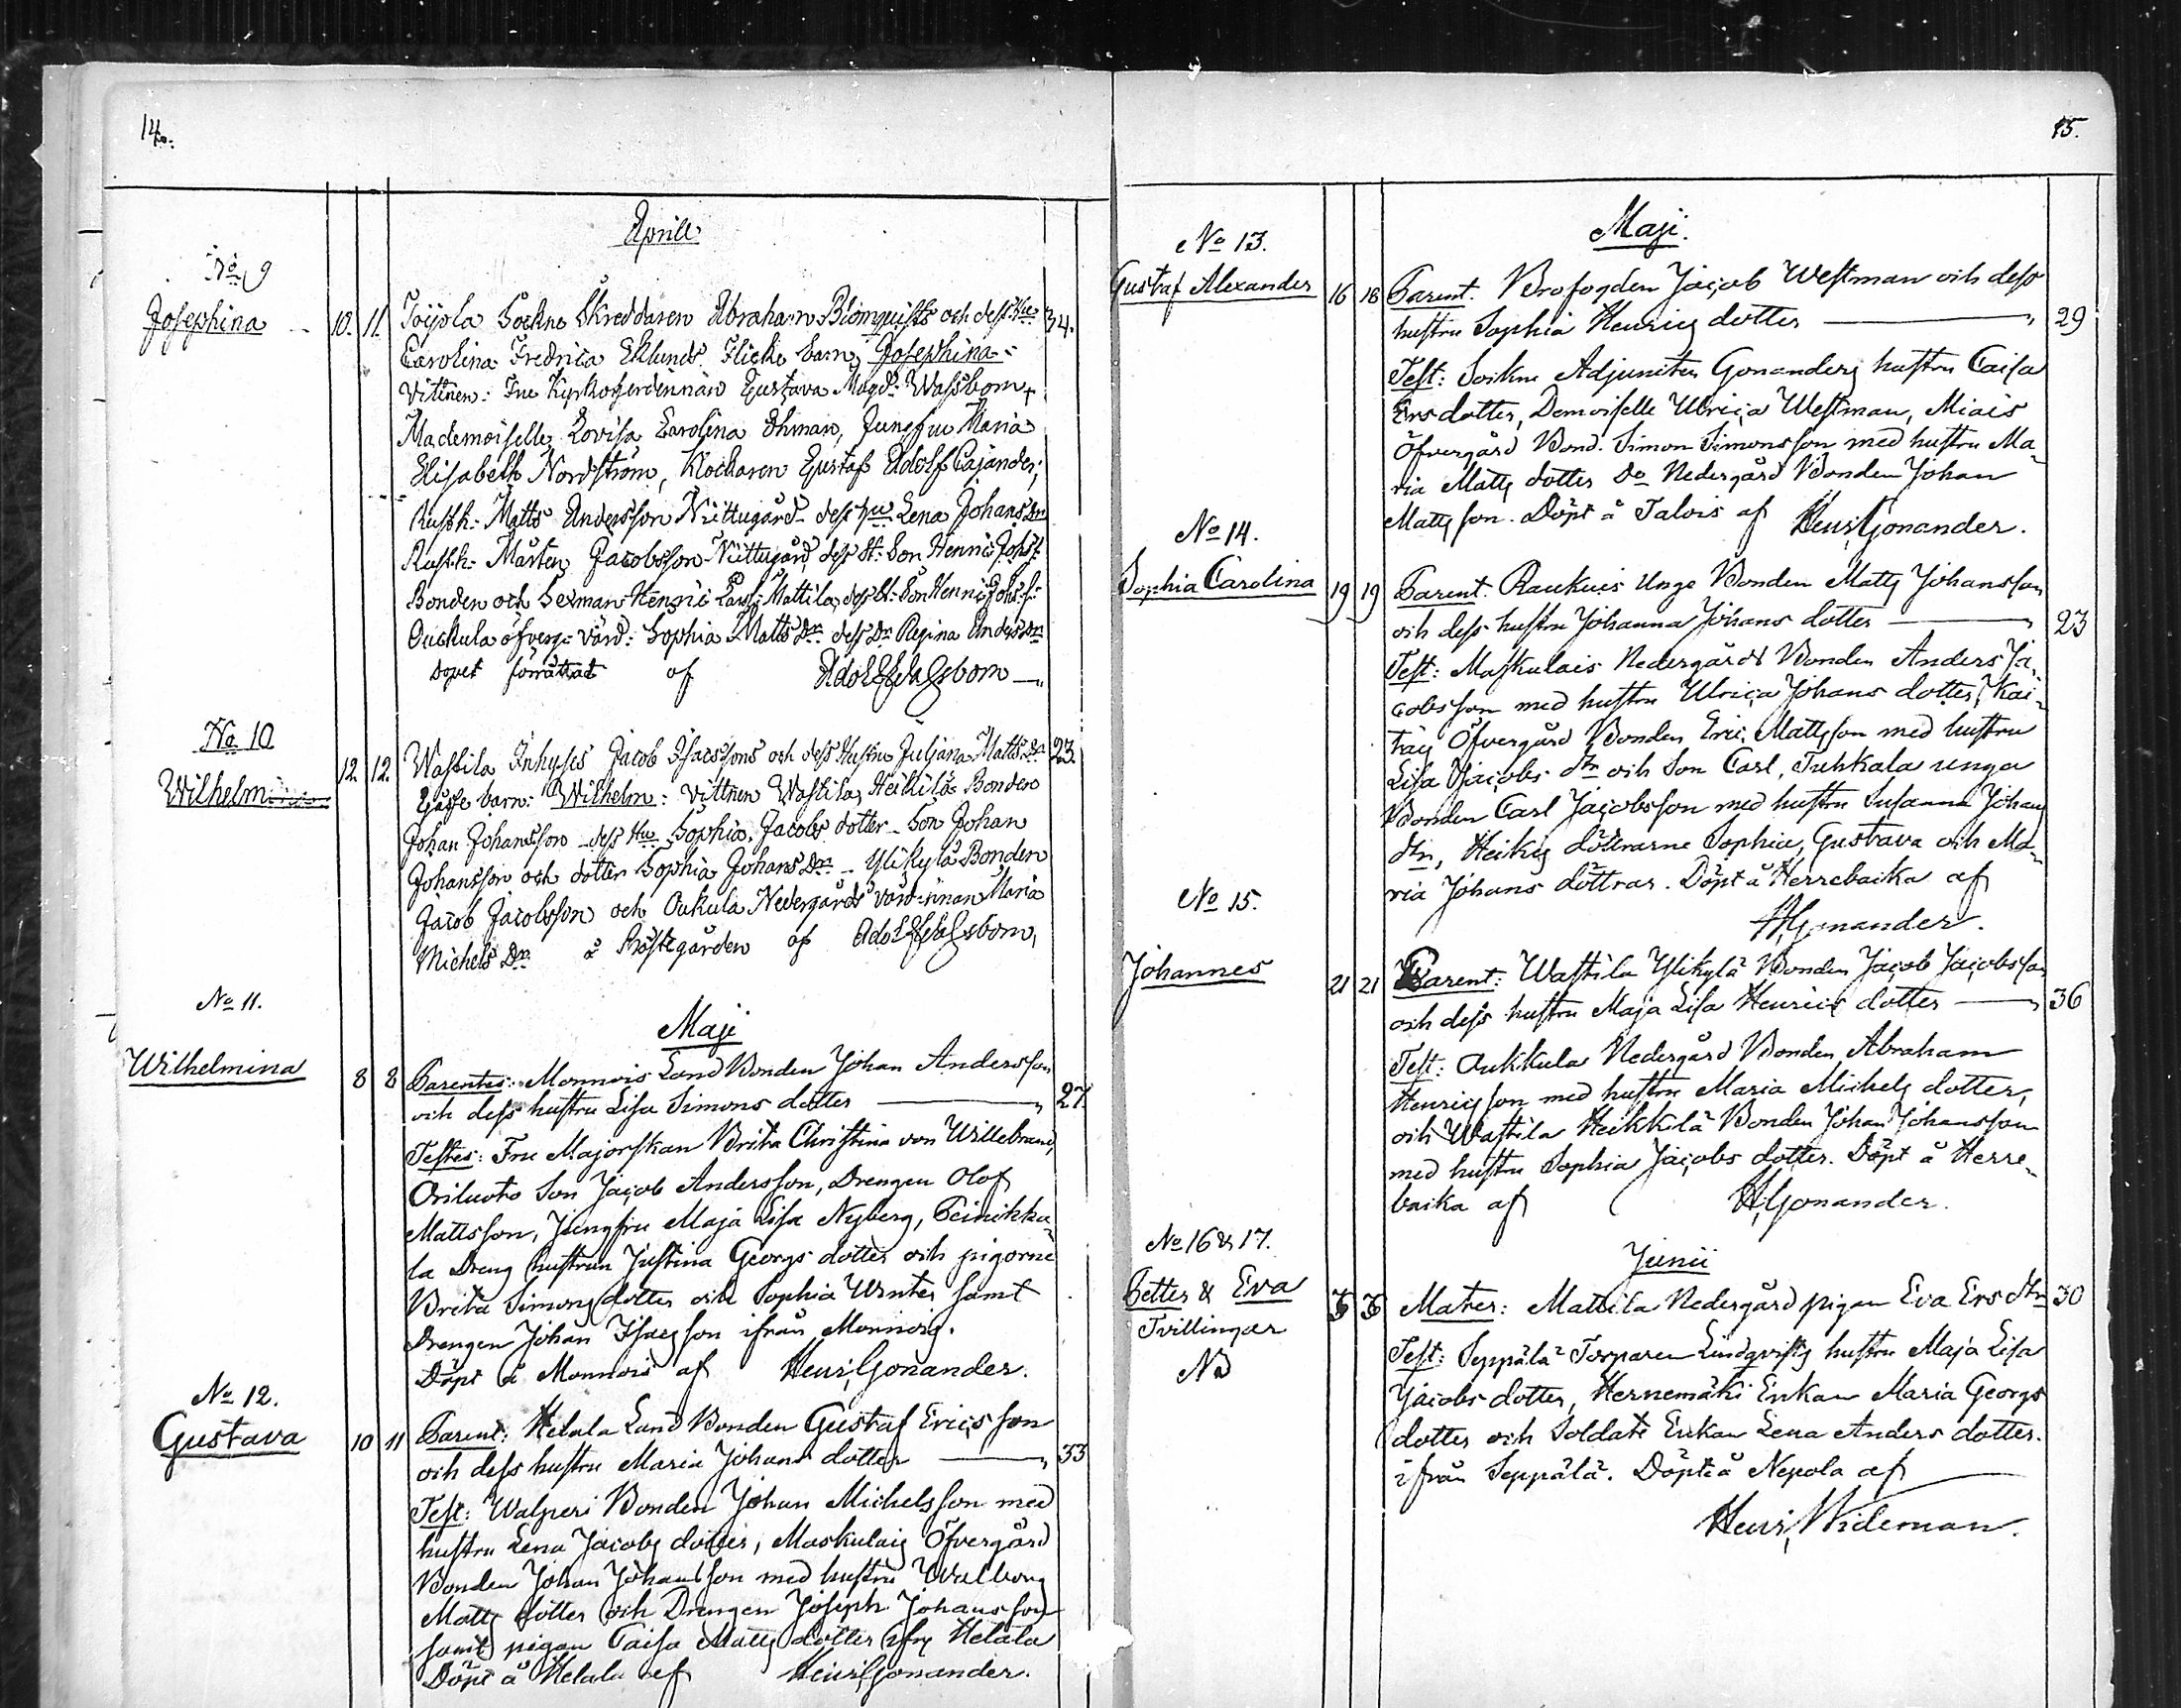 14.
Aprill.
No 9
Josephina
10. 11.
Toijola Sockne Skreddaren Abraham Blomquists och dess Hu
34.
Carolina Fredrica Eklunds Flicke barn Josephina
Vittnen: Fru Kyrkoherdinnan Gustava Magd: Wassbom
Mademoiselle Lovisa Carolina Öhman, Jungfru Maria
Elisabeth Nordström, Klockaren Gustaf Adolf Cajander,
Rusth: Matts Andersson Niittugård dess Hu Lena Johans Dr
Rusth: Mårten Jacobsson Niittugård, dess St: Son Henric Johs S:
Bonden och Sexman Henric Larss: Mattila, dess St: Son Henric Johs: S:
Ouckula öfverg: värd: Sophia Matts Dr dess Dr Regina Anders Dr
Dopet förrättat af Adolf
No 10
Wilhelm
12. 12.
Wastila Inhyses Jacob Isacssons och dess Hustru Juliana Matts Dr
23.
Gosse barn: Wilhelm: Vittnen Wastila Heikilä Bonden
Johan Johansson dess Hu Sophia Jacobs dotter Son Johan
Johansson och dotter Sophia Johans Dr Ylikylä Bonden
Jacob Jacobsson och Oukula Nedergårds värdinnan Maria
Michels Dr å Prästegården af Adolf
Maji
No 11.
Wilhelmina
8 8
Parentes: Monnois Land Bonden Johan Andersson
och dess hustru Lisa Simons dotter
27.
Testes: Fru Majorskan Brita Christina von Willebrand,
Oriluoto Son Jacob Andersson, Drengen Olof
Mattsson, Jungfru Maja Lisa Nyberg, Peinikka-
la Dreng hustrun Justina Georgs dotter och pigorne
Brita Simons dotter och Sophia Winter samt
Drengen Johan Isacsson ifrån Monnois.
Döpt å Monnois af Henr. Gonander.
No 12.
Gustava
10 11
Parent: Helala Land Bonden Gustaf Ericsson
och dess hustru Maria Johans dotter
33
Test: Walperi Bonden Johan Michelsson med
hustru Lena Jacobs dotter, Maskulais Öfvergård
Bonden Johan Johansson med hustru Walborg
Matts dotter och Drengen Joseph Johansson
samt pigan Caisa Matts dotter ifrn Helala
Döpt å Helala af Henr. Gonander.
15.
Maji.
No 13.
Gustaf Alexander
16 18
Parent. Brofogden Jacob Westman och dess
hustru Sophia Henrics dotter
29
Test: Sockne Adjuncten Gonanders hustru Caisa
Ersdotter, Demoiselle Ulrica Westman, Miais
Öfvergård Bond. Simon Simonsson med hustru Ma-
ria Matts dotter Do Nedergård Bonden Johan
Mattsson. Döpt å Talois af Henr. Gonander.
No 14.
Sophia Carolina
19 19
Parent. Raukuis Unge Bonden Matts Johansson
och dess hustru Johanna Johans dotter
23
Test: Maskulais Nedergårds Bonden Anders Ja-
cobsson med hustru Ulrica Johans dotter, Kai-
Öfvergård Bonden Eric Mattsson med hustru
Lisa Jacobs dtr och Son Carl, Tuhkala unga
Bonden Carl Jacobsson med hustru Susanna Johans
dtr, Heikis döttrarne Sophia, Gustava och Ma-
ria Johans döttrar. Döpt å Herrebacka af
H. Gonander.
No 15.
Johannes
21 21
Parent: Wastila Ylikylä Bonden Jacob Jacobsson
och dess hustru Maja Lisa Henrics dotter
36
Test: Aukkula Nedergård Bonden Abraham
Henricsson med hustru Maria Michels dotter,
och Wastila Heikkilä Bonden Johan Johansson
med hustru Sophia Jacobs dotter. Döpt å Herre-
backa af H. Gonander.
Junii
No 16 & 17.
Petter & Eva
Tvillingar
3 3
Mater: Mattila Nedergård pigan Eva Ers dtr
30
Test: Seppälä Torparen Lindqvists hustru Maja Lisa
Jacobs dotter, Hernemäki Enkan Maria Georgs
dotter och Soldats Enkan Lena Anders dotter.
ifrån Seppälä. Döpte å Nepola af
Henr. Wideman.